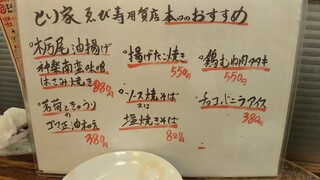 とり家 ゑび寿 用賀店 本日のおすすめ
・栃尾油揚げ
神楽南蛮味噌
はさみ焼き 580円
・茗荷ときゅうりの
ゴマ正油和え
380円
・揚げたこ焼き
550円
・ソース焼そば
又は
塩焼きそば
820円
・鶏むね肉タタキ
550円
・チョコ、バニラアイス
380円